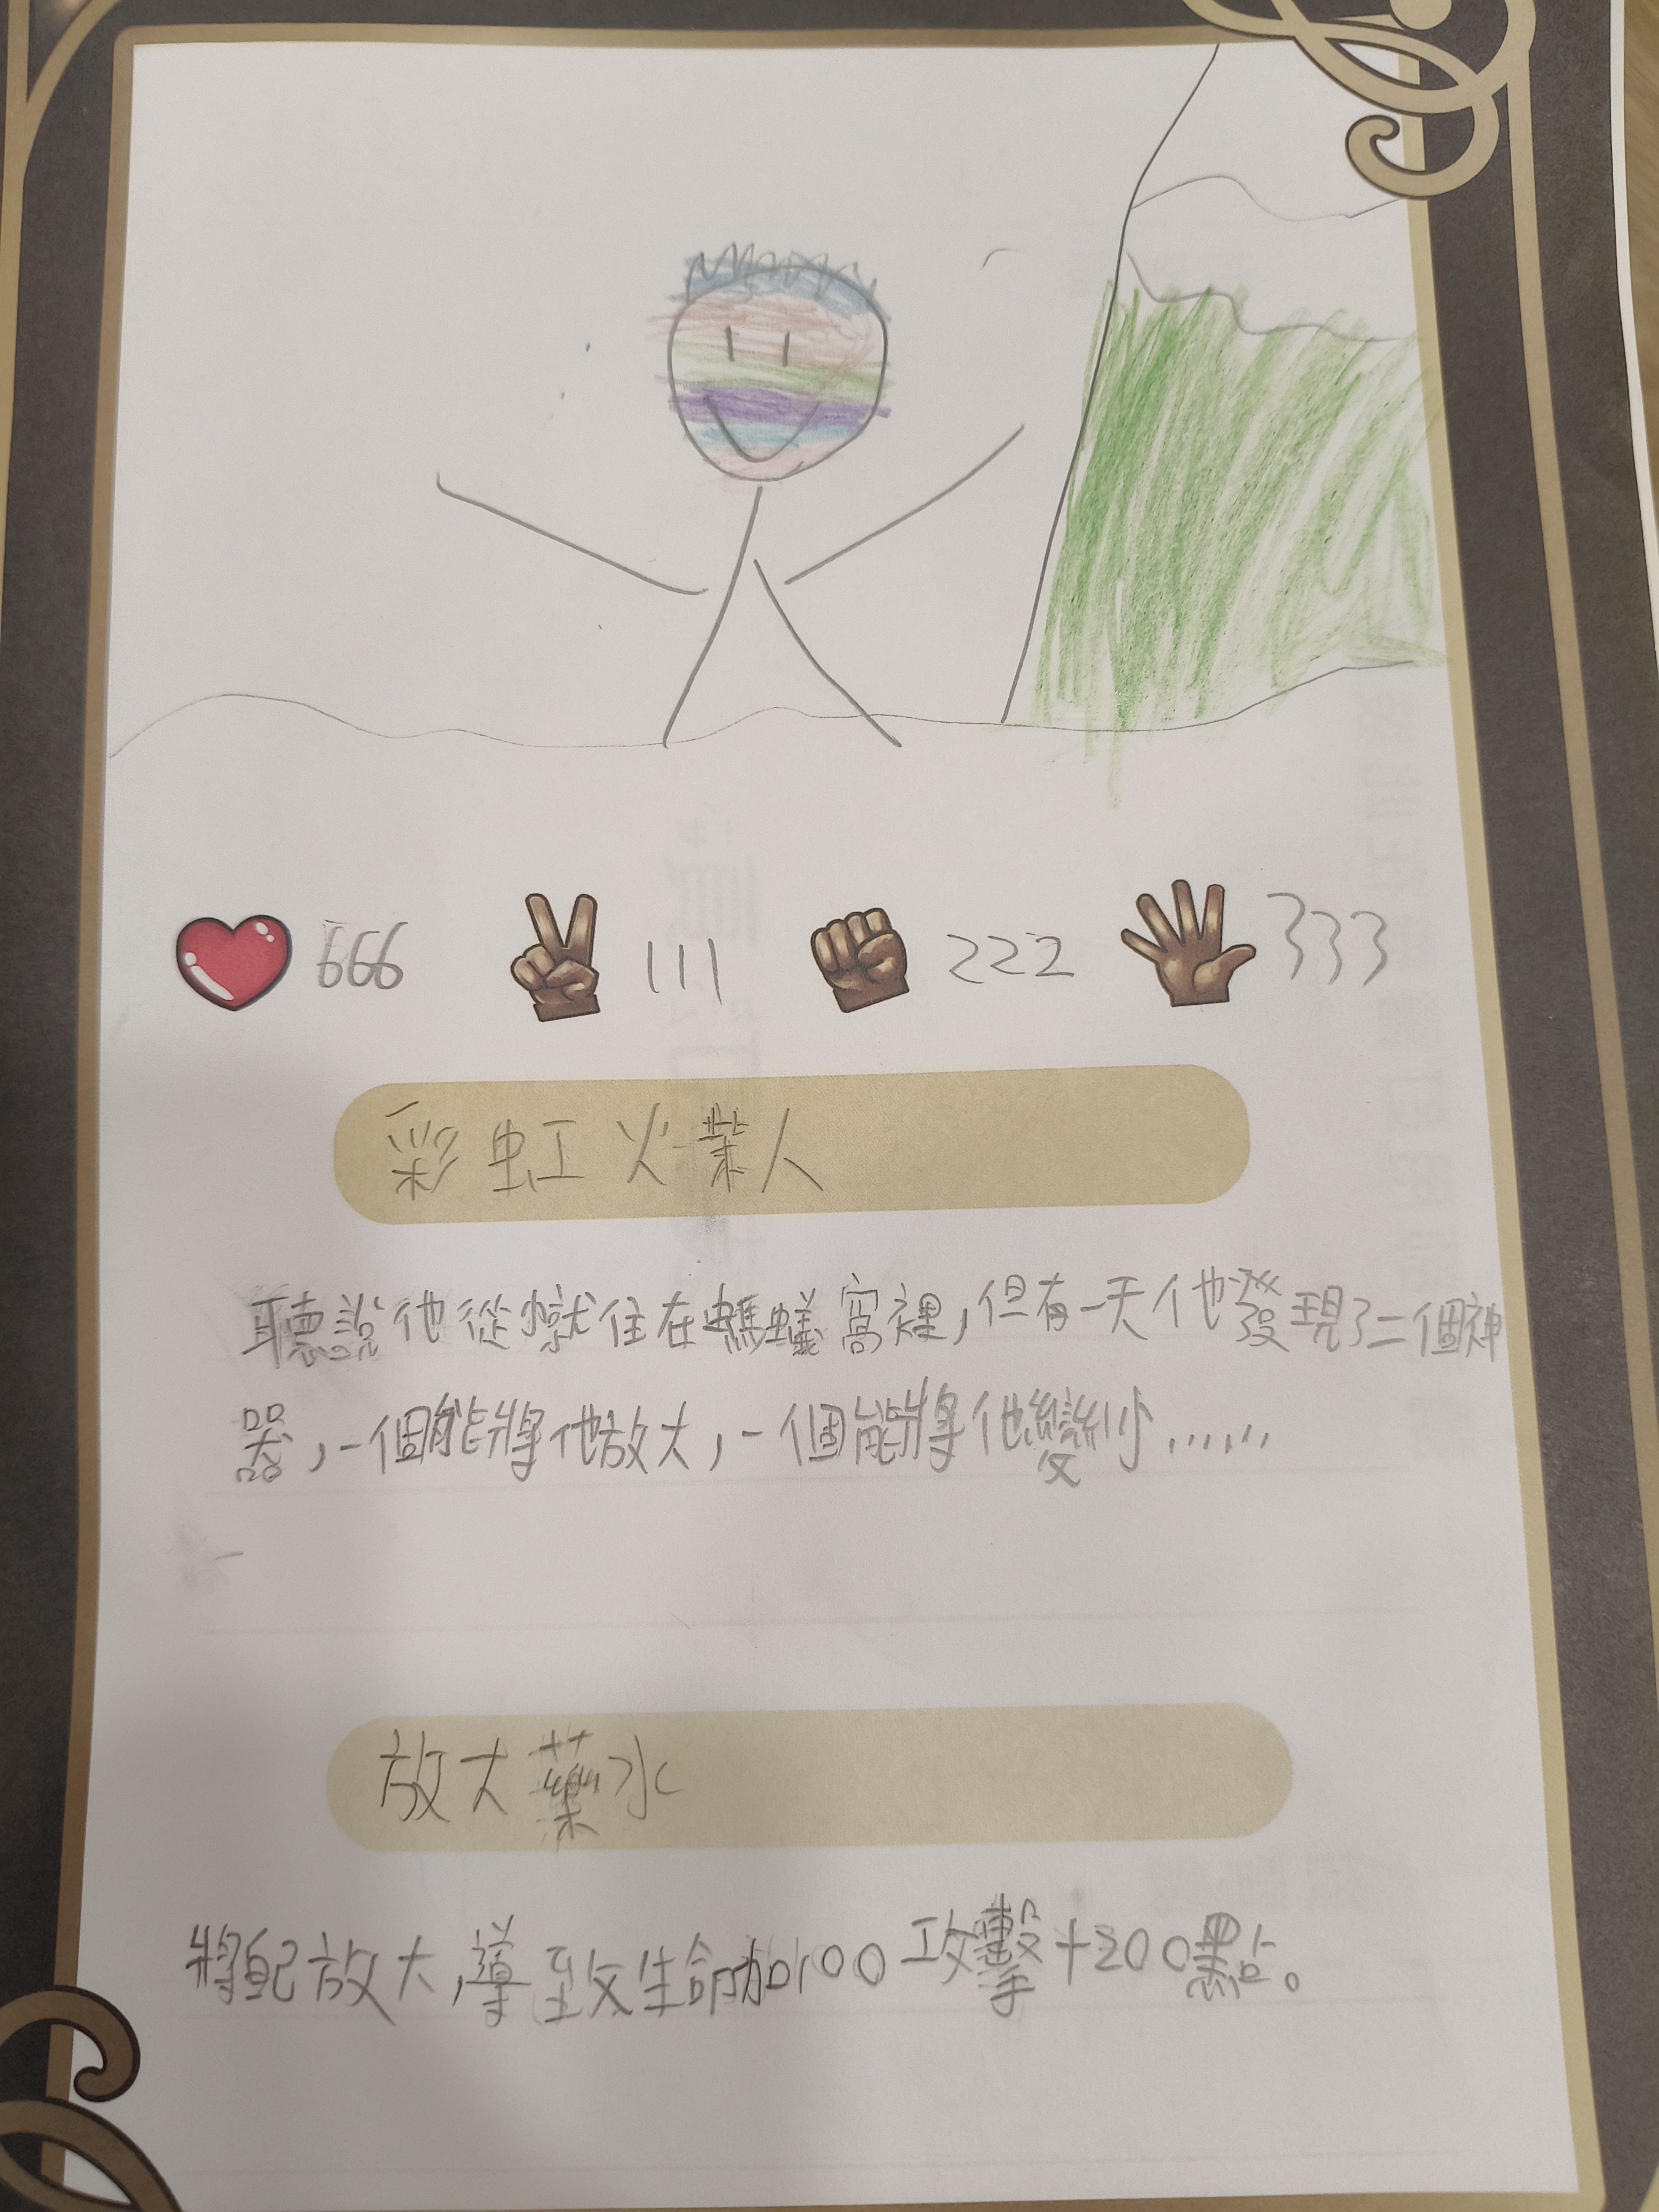 666 111 222 333
彩虹火業人
聽說他從小就住在螞蟻窩裡,但有一天他發現了二個神
器,一個能將他放大,一個能將他變小......
放大藥水
將自己放大,導致生命加100攻擊+200點。